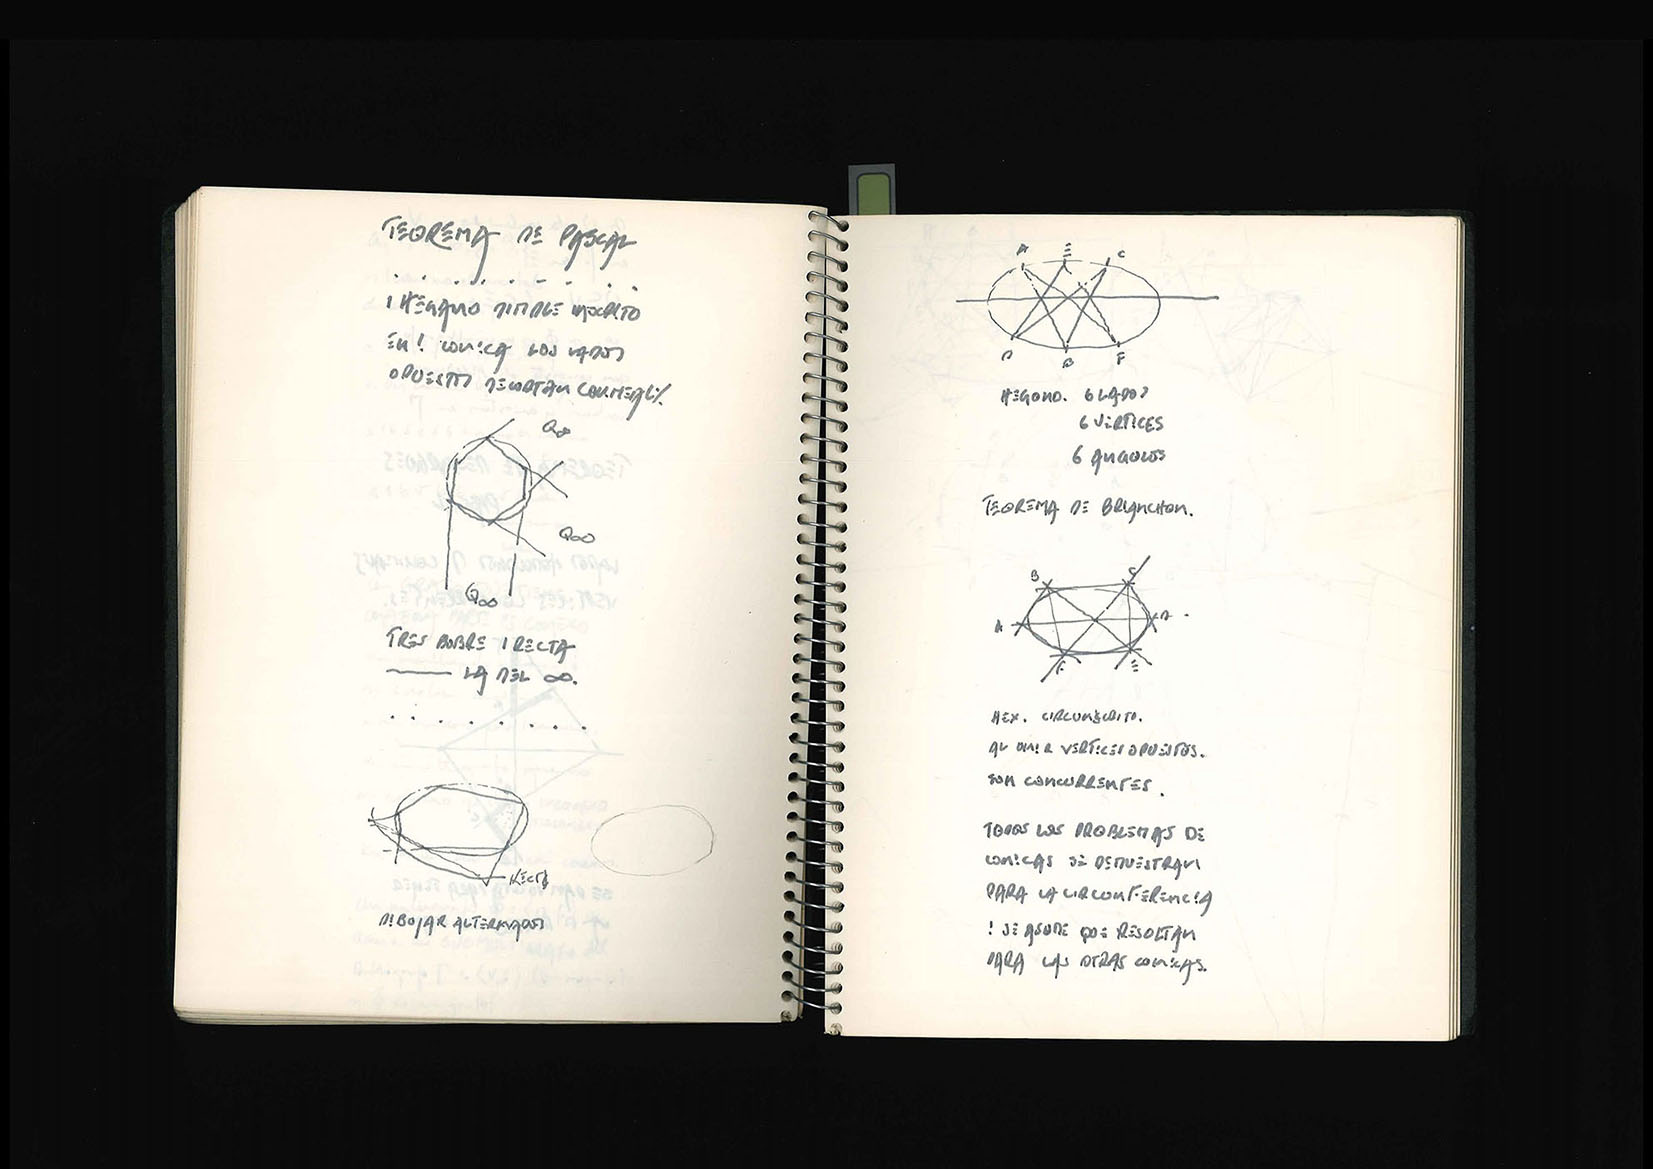 TEOREMA DE PASCAL
1 HEGANO SIMPLE INSCRITO
EN 1 CONICA LOS LADOS
OPUESTOS SE CORTAN
Q∞
Q∞
Q∞
TRES SOBRE 1 RECTA
LA DEL ∞.
RECTA
DIBUJAR ALTERNADOS
A E C
D B F
HEGONO. 6 LADOS
6 VERTICES
6 ANGULOS
TEOREMA DE BRIANCHON.
B C
A D
F E
HEX. CIRCUNSCRITO.
AL UNIR VERTICES OPUESTOS.
SON CONCURRENTES.
TODOS LOS PROBLEMAS DE
CONICAS SE DEMUESTRAN
PARA LA CIRCUNFERENCIA
! SE ASUME QUE RESULTAN
PARA LAS OTRAS CONICAS.